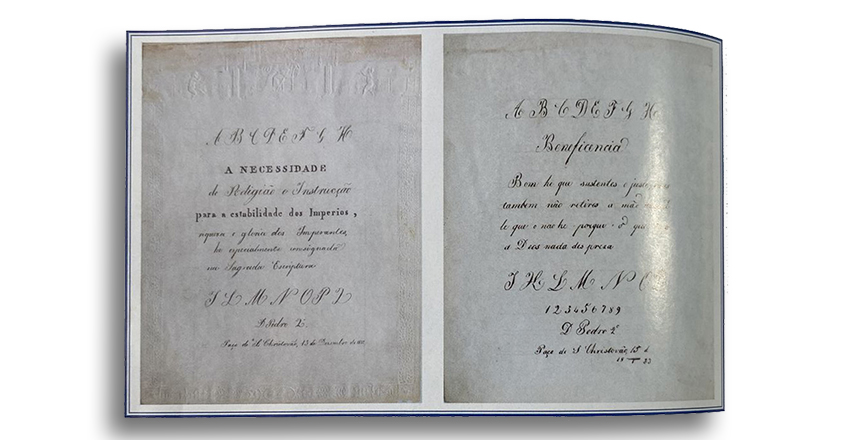 A B C D E F G H
A NECESSIDADE
de Religião e Instrucção
para a estabilidade dos Imperios ,
riqueza e gloria dos Imperantes,
he especialmente consignada
na Sagrada Escriptura
J L M N O P
D. Pedro 2º.
Paço de S. Christovão, 15 de Dezembro de
A B C D E F G H
Beneficencia
Bom he que sustentes o
tambem não retires a mão
le que o nao he porque o que
a Deos nada despreza
J H L M N O
1 2 3 4 5 6 7 8 9
D Pedro 2º
Paço de S Christovão, 15 d